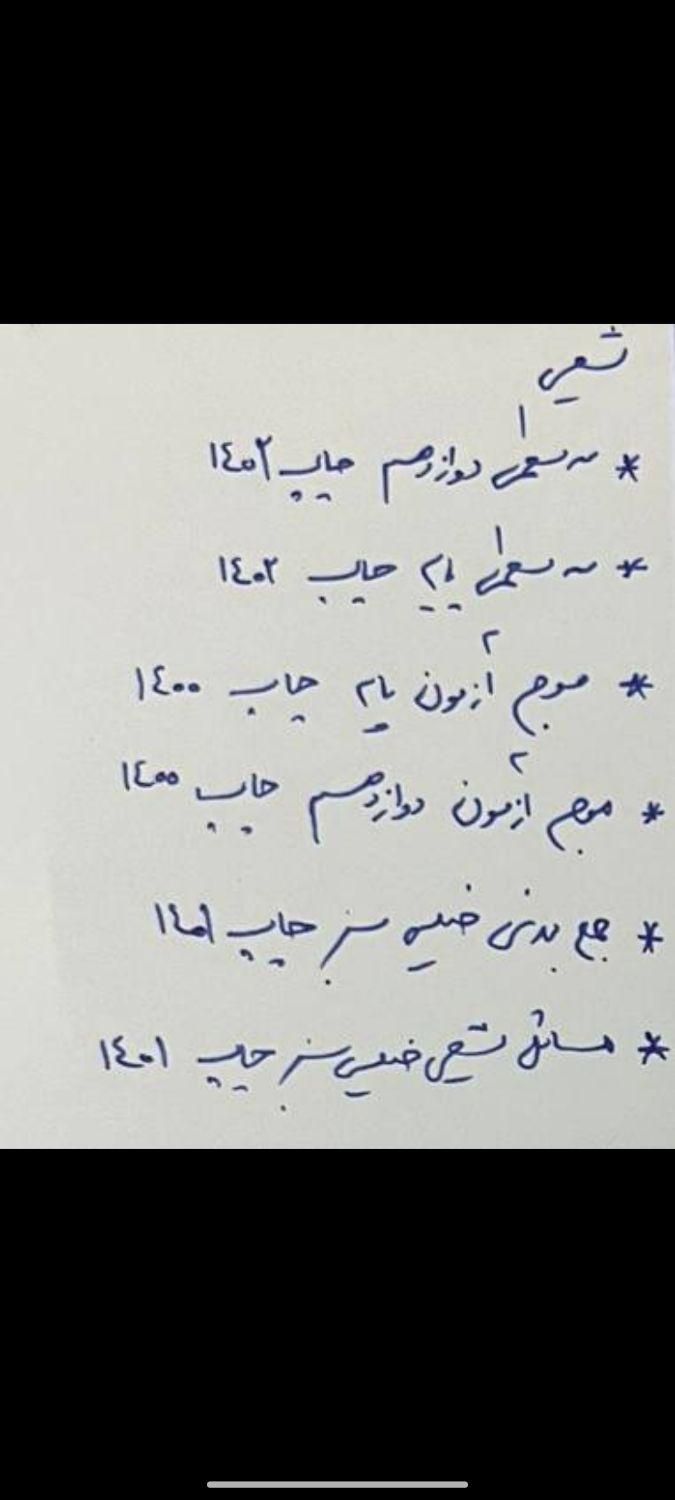 شیمی
* سه سطحی ۱ دوازدهم چاپ ۱۴۰۲
* سه سطحی ۱ پایه چاپ ۱۴۰۲
* موج آزمون ۲ پایه چاپ ۱۴۰۰
* موج آزمون ۲ دوازدهم چاپ ۱۴۰۰
* جمع بندی خیلی سبز چاپ ۱۴۰۱
* مسائل شیمی خیلی سبز چاپ ۱۴۰۱